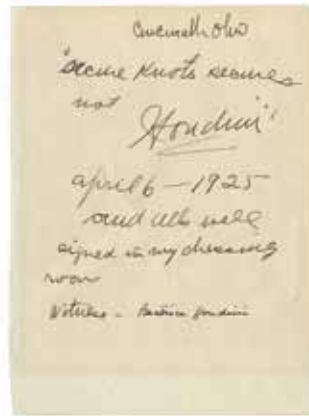 Cincinnati Ohio
"secure knots secures
not
Houdini"
april 6 – 1925
and all's well
signed in my dressing
room
Witness – Beatrice Houdini